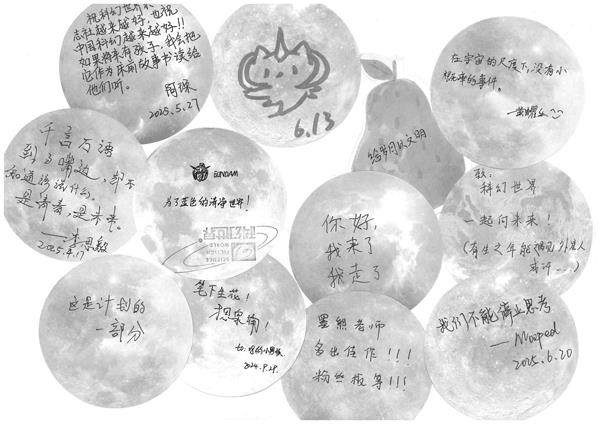 祝科幻世界杂
志社越来越好,也祝
中国科幻越来越好!!
如果将来有孩子,我会把
它作为床前故事书读给
他们听。
2025.5.27
6.13
给岁月以文明
在宇宙的尺度下,没有小
概率的事件。
千言万语
到了嘴边,却不
知道该说什么。
是青春,是未来。
2025.4.17
GUNDAM
为了蓝色的清净世界!
科幻世界
SCIENCE
FICTION
WORLD
你好,
我来了
我走了
致:
科幻世界
一起向未来!
(有生之年能遇见外星人
这是计划的
一部分
笔下生花!
想象瑜!
2024.9.29.
墨熊老师
多出佳作!!!
粉丝板等!!!
我们不能停止思考
2025.6.20